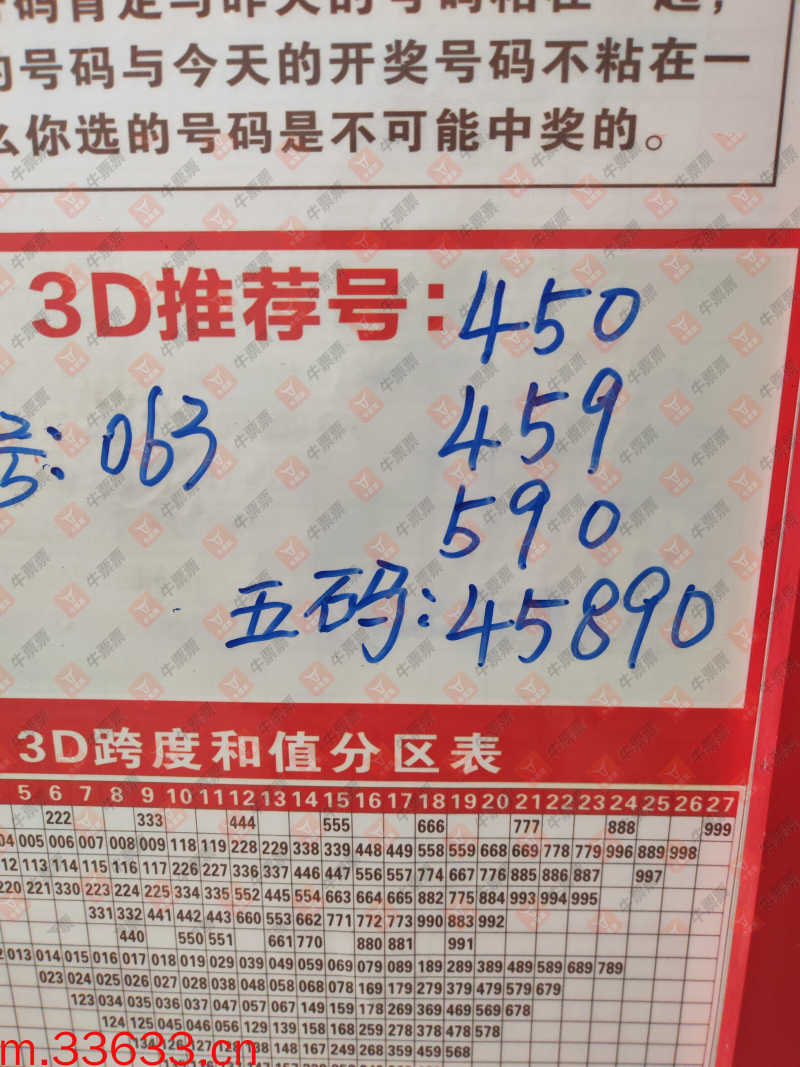 号码肯定与昨天的号码粘在一起，
的号码与今天的开奖号码不粘在一
么你选的号码是不可能中奖的。
3D推荐号:450
号:063 459
590
五码:45890
3D跨度和值分区表
5 6 7 8 9 10 11 12 13 14 15 16 17 18 19 20 21 22 23 24 25 26 27
222 333 444 555 666 777 888 999
04 005 006 007 008 009 118 119 228 229 338 339 448 449 558 559 668 669 778 779 996 889 998
12 113 114 115 116 117 226 227 336 337 446 447 556 557 774 667 776 885 886 887 997
220 221 330 223 224 225 334 335 552 445 554 663 664 665 882 775 884 993 994 995
331 332 441 442 443 660 553 662 771 772 773 990 883 992
440 550 551 661 770 880 881 991
013 014 015 016 017 018 019 029 039 049 059 069 079 089 189 289 389 489 589 689 789
023 024 025 026 027 028 038 048 058 068 078 169 179 279 379 479 579 679
123 034 035 036 037 047 057 067 149 159 178 269 369 469 569 678
124 125 045 046 056 129 139 158 168 259 278 378 478 578
134 126 127 128 138 148 167 249 268 359 459 568
m.33633.cn
牛票票